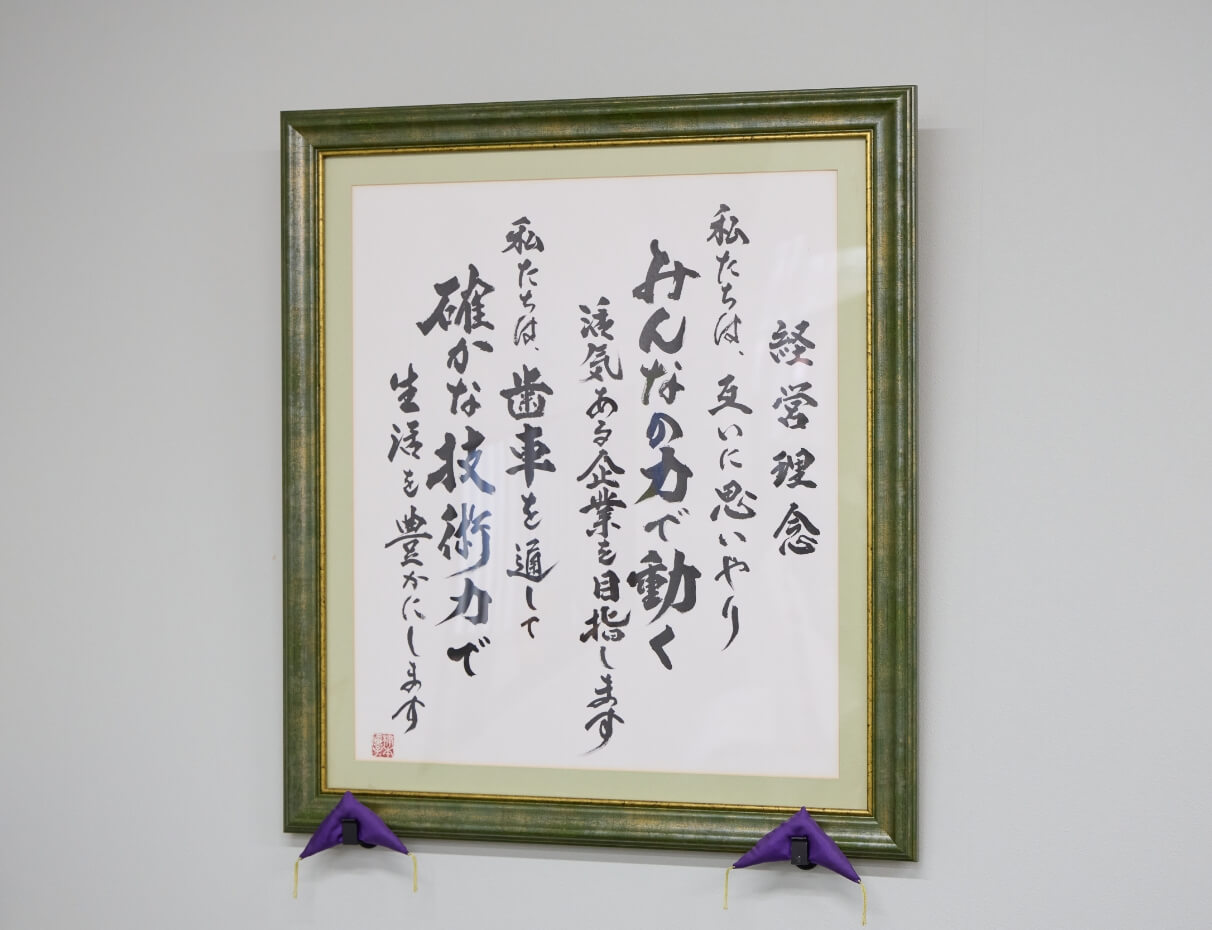 経営理念
私たちは、互いに思いやり
みんなの力で動く
活気ある企業を目指します
私たちは、歯車を通して
確かな技術力で
生活を豊かにします